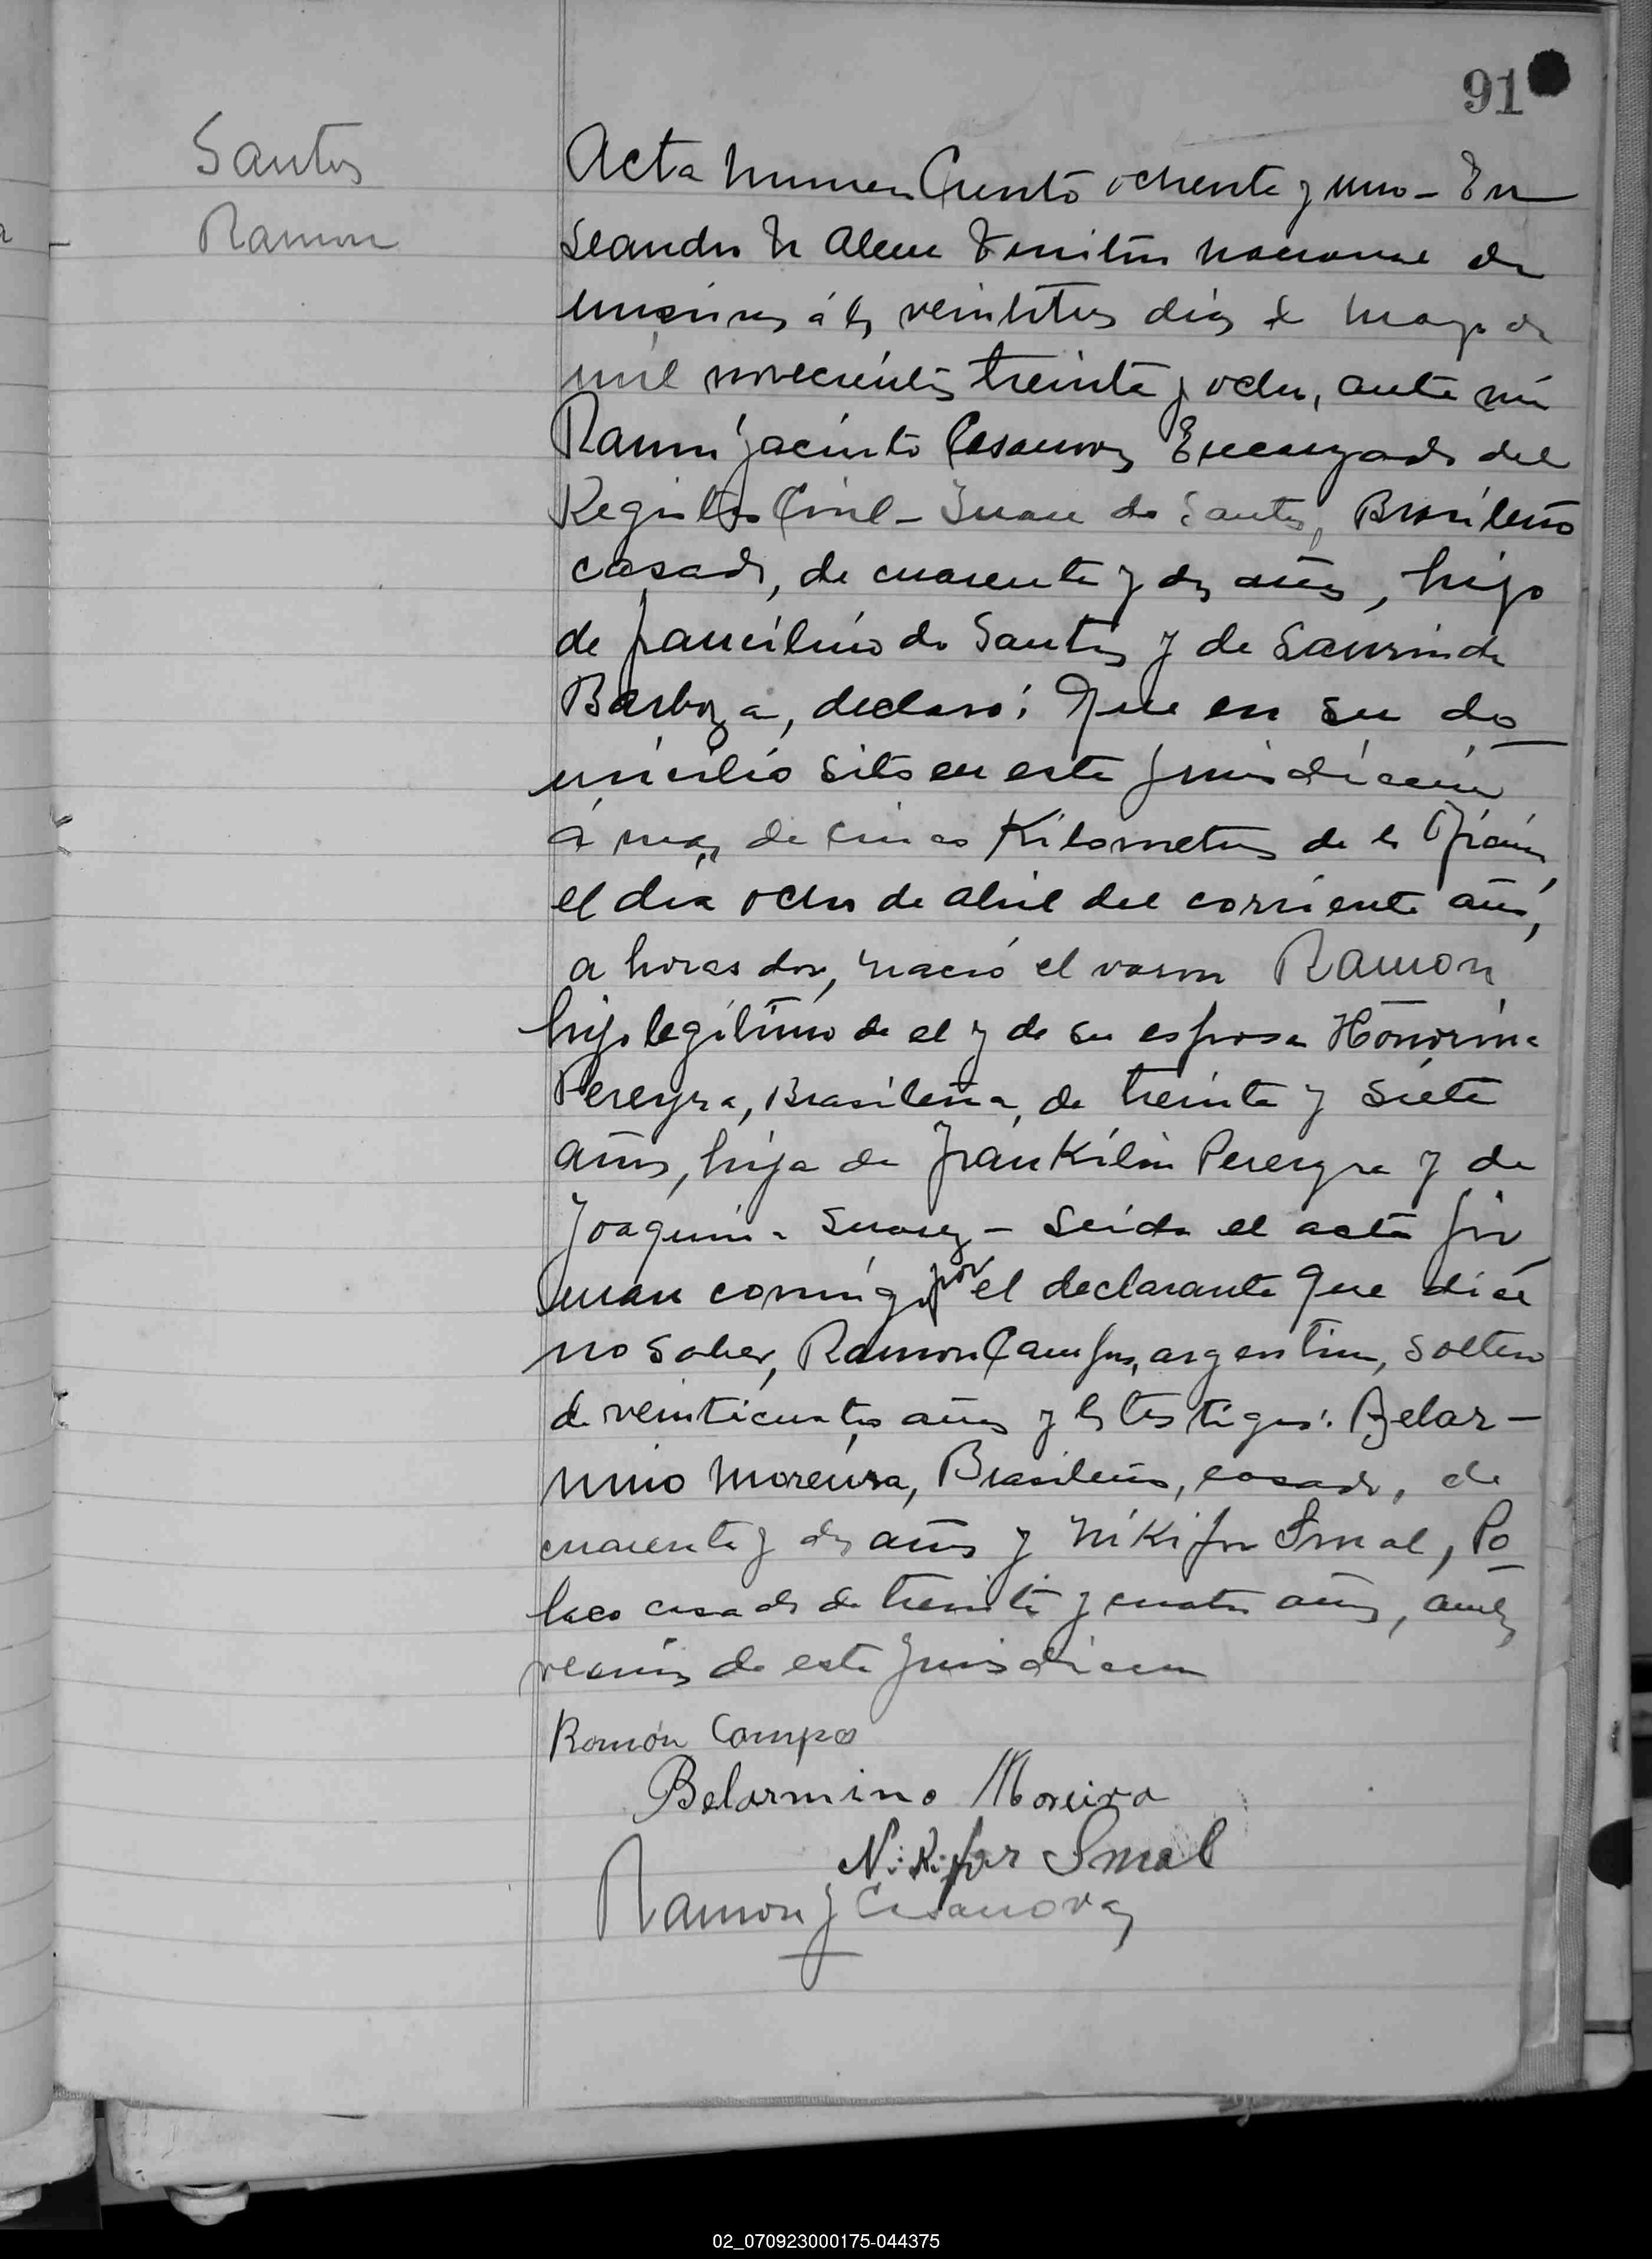 91
Santos
Ramon
Acta numero Ciento ochenta y uno - En
Leandro N Alem Territorio nacional de
Misiones á los veintitres dias de Mayo de
mil novecientos treinta y ocho, ante mi
Ramon Jacinto Casanova, Encargado del
Registro Civil - Juan do Santos, Brasileño
casado, de cuarenta y dos años, hijo
de do Santos y de
Barboza, declaró: Que en su do
micilio sito en esta jurisdicción
á mas de cinco Kilometros de la Oficina,
el dia ocho de abril del corriente año,
a horas dos, nació el varon Ramon
hijo legítimo de el y de su esposa Honorina
Pereyra, Brasileña, de treinta y siete
años, hija de Frankilin Pereyra y de
Joaquina Suarez - Leida el acta fir
man conmigo por el declarante que dice
no saber, Ramon Campos, argentino, soltero
de veinticuatro años y los testigos: Belar-
mino Moreira, Brasileño, casado, de
cuarenta y dos años y Nikifor Smal, Po
laco casado de treinta y cuatro años, ambos
vecinos de esta jurisdiccion
Ramón Campos
Belarmino Moreira
Nikifor Smal
Ramon J Casanova
02_070923000175-044375